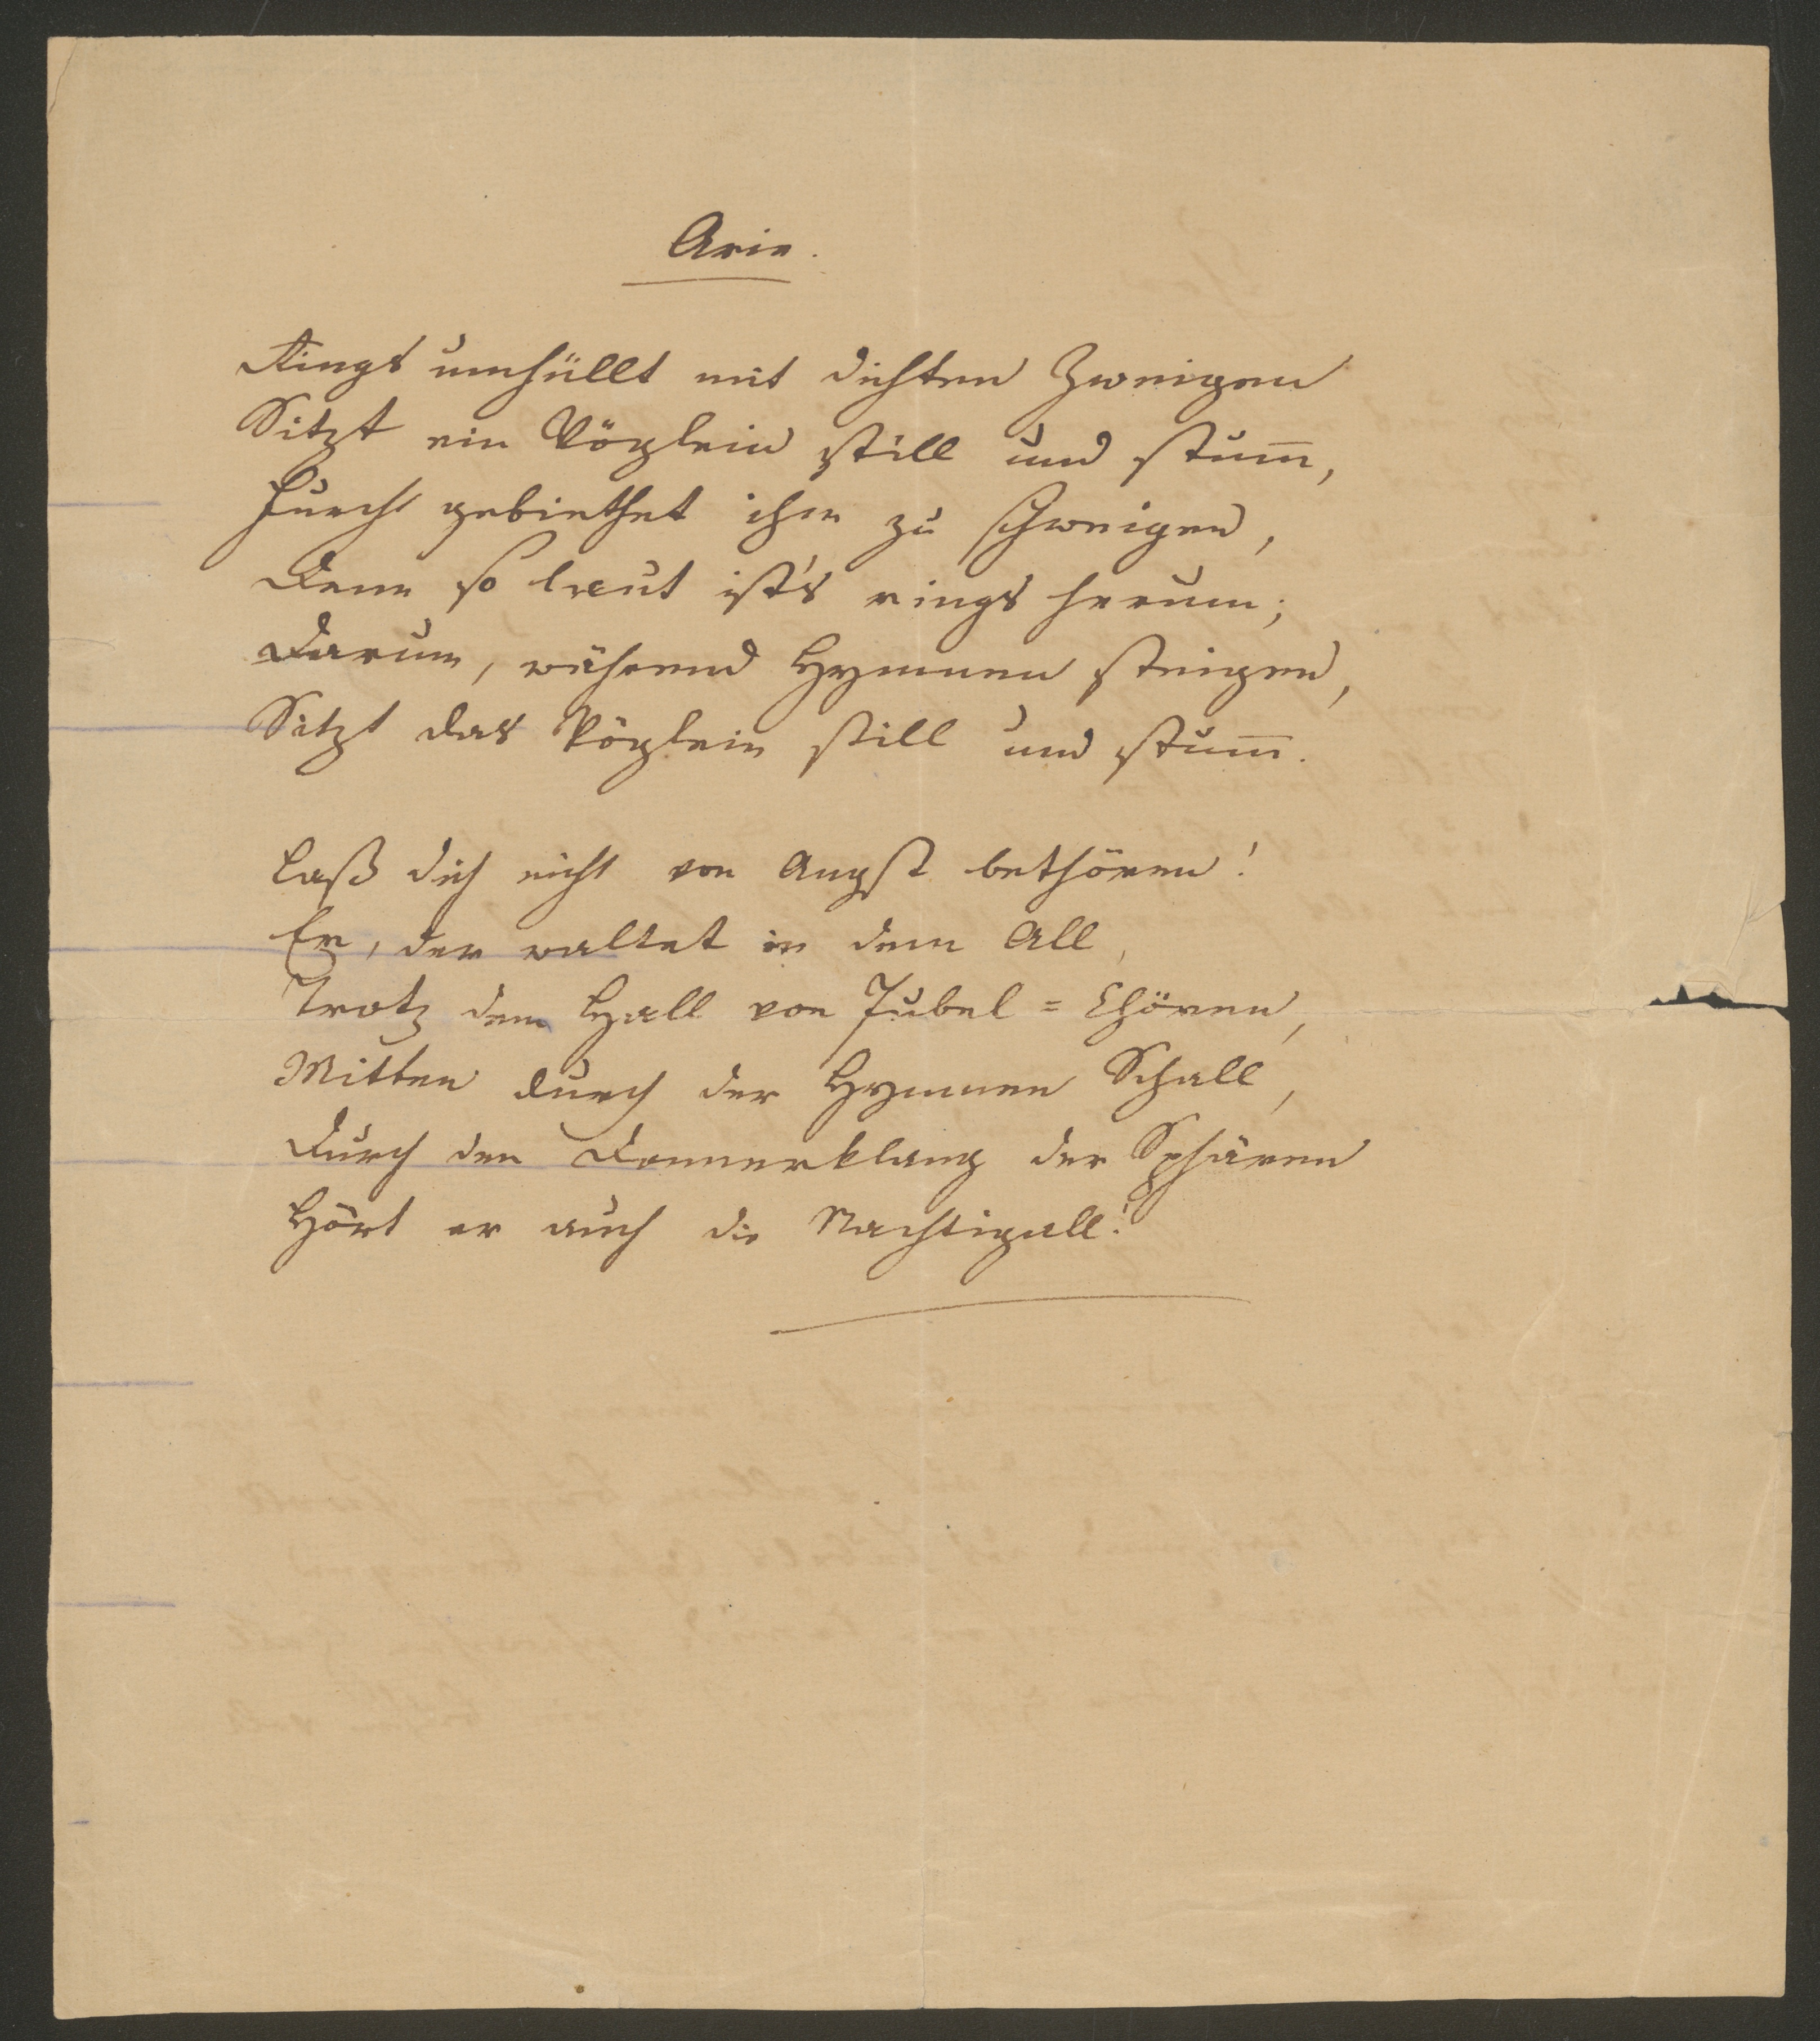 Arie.
Rings umhüllt mit dichten Zweigen
Sitzt ein Vöglein still und stum̅,
Furcht gebiethet ihm zu schweigen,
Denn so laut ist's rings herum;
Darum, während Hymnen steigen,
Sitzt das Vöglein still und stum̅.
Laß dich nicht von Angst bethören!
Er, der waltet in dem All,
Trotz dem Hall von Jubel=Chören,
Mitten durch der Hymnen Schall,
Durch den Donnerklang der Sphären
Hört er auch die Nachtigall!